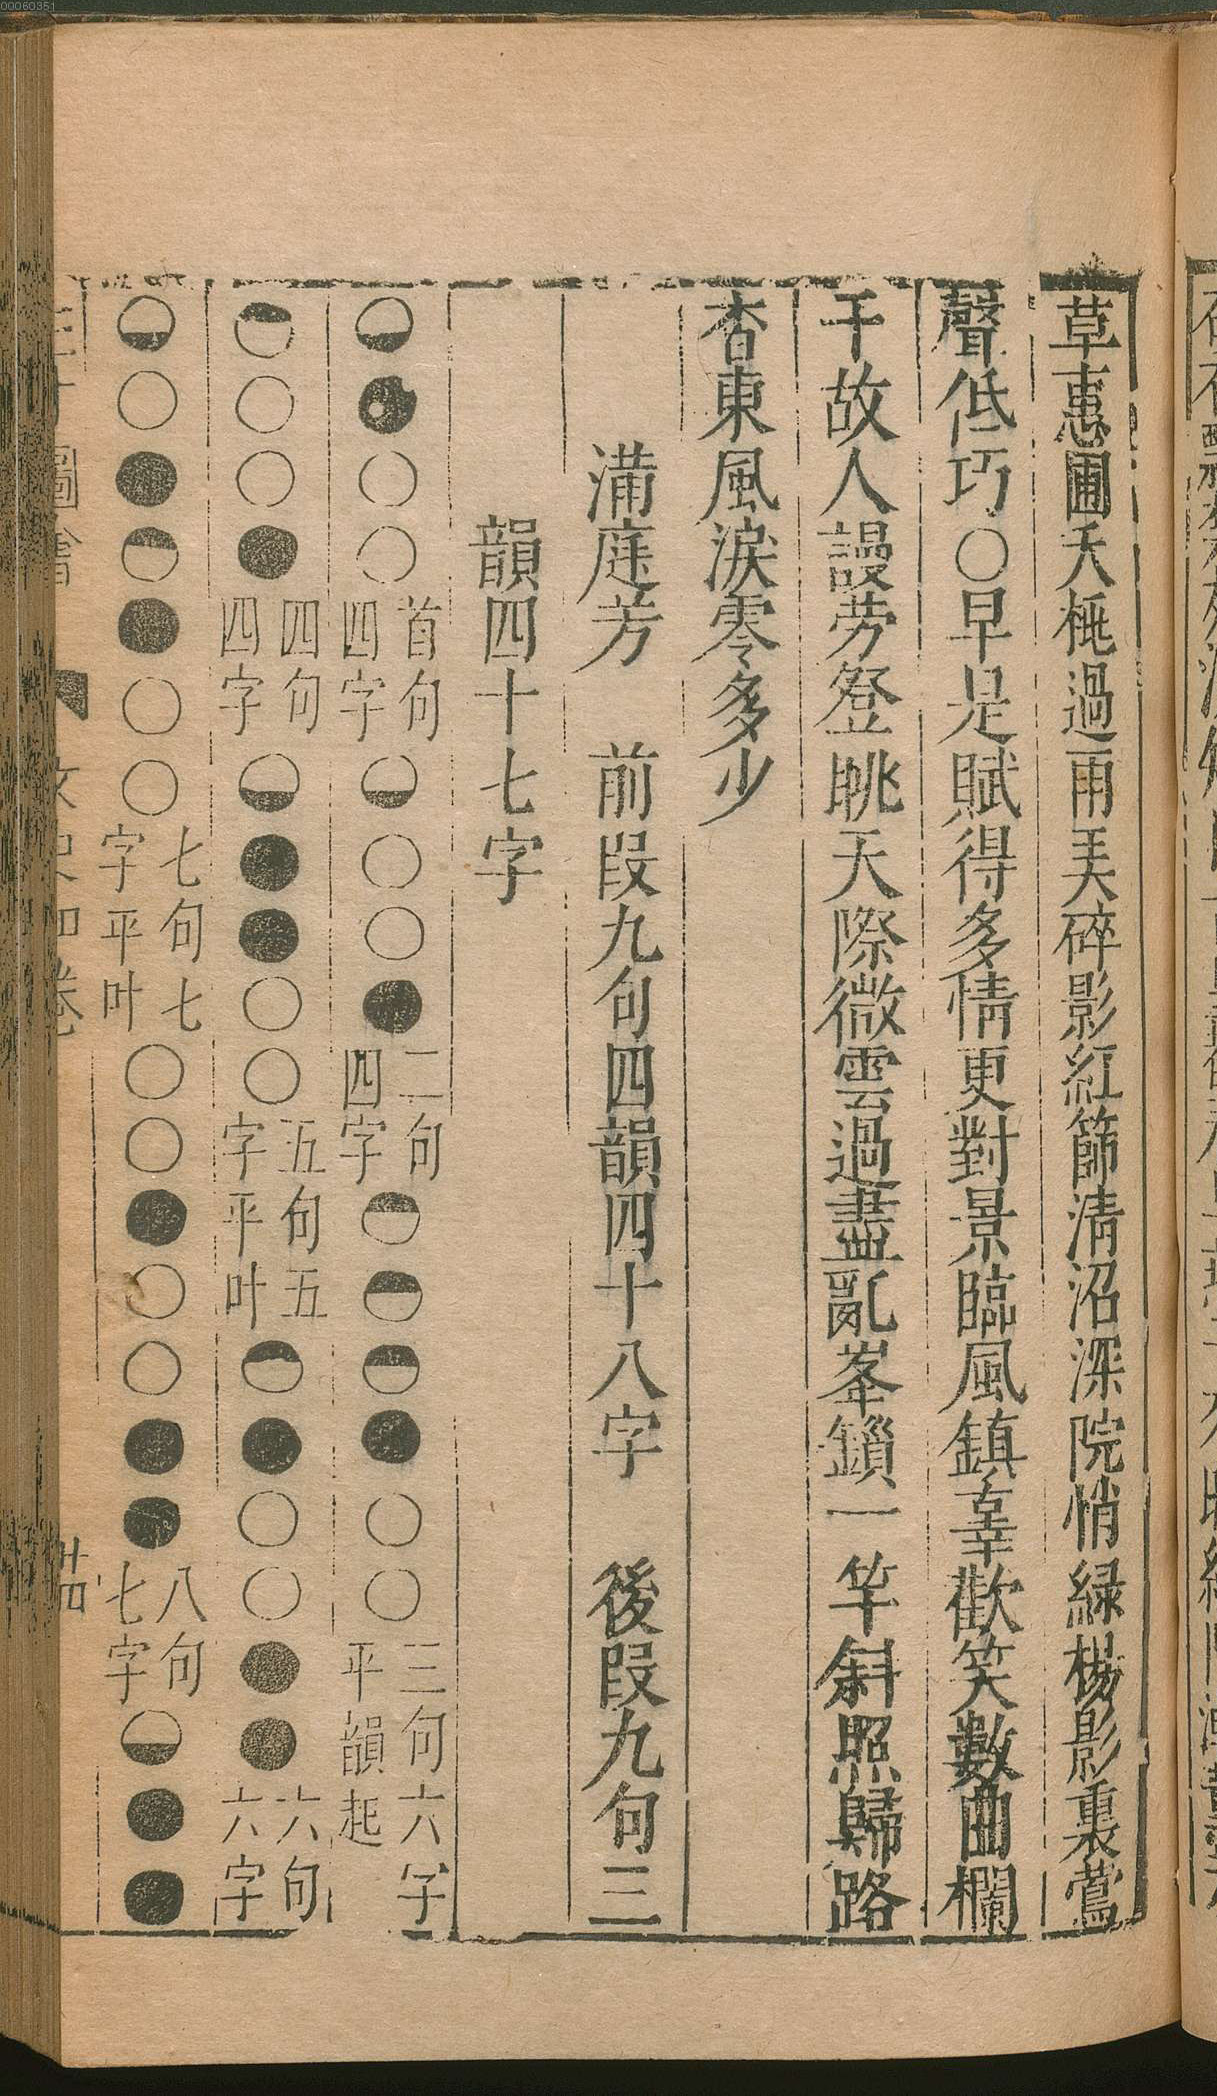 草蕙圃夭桃過雨弄碎影紅篩清沼深院悄緑楊影裏鶯
聲低巧〇早是賦得多情更對景臨風鎮辜歡笑數曲欄
干故人謾勞登眺天際微雲過盡亂峯鎖一竿斜照歸路
杳東風淚零多少
滿庭芳 前段九句四韻四十八字 後段九句三
韻四十七字
◒●○○首句四字◒○○●二句四字◓◓◓●○○三句六字平韻起
◓○○●四句四字◒●●○○五句五字平叶◓●○○●●六句六字
◒○●◓●○○七句七字平叶○○●○○●●八句七字◒●●
三才圖會
文史四卷
廿四
00060351